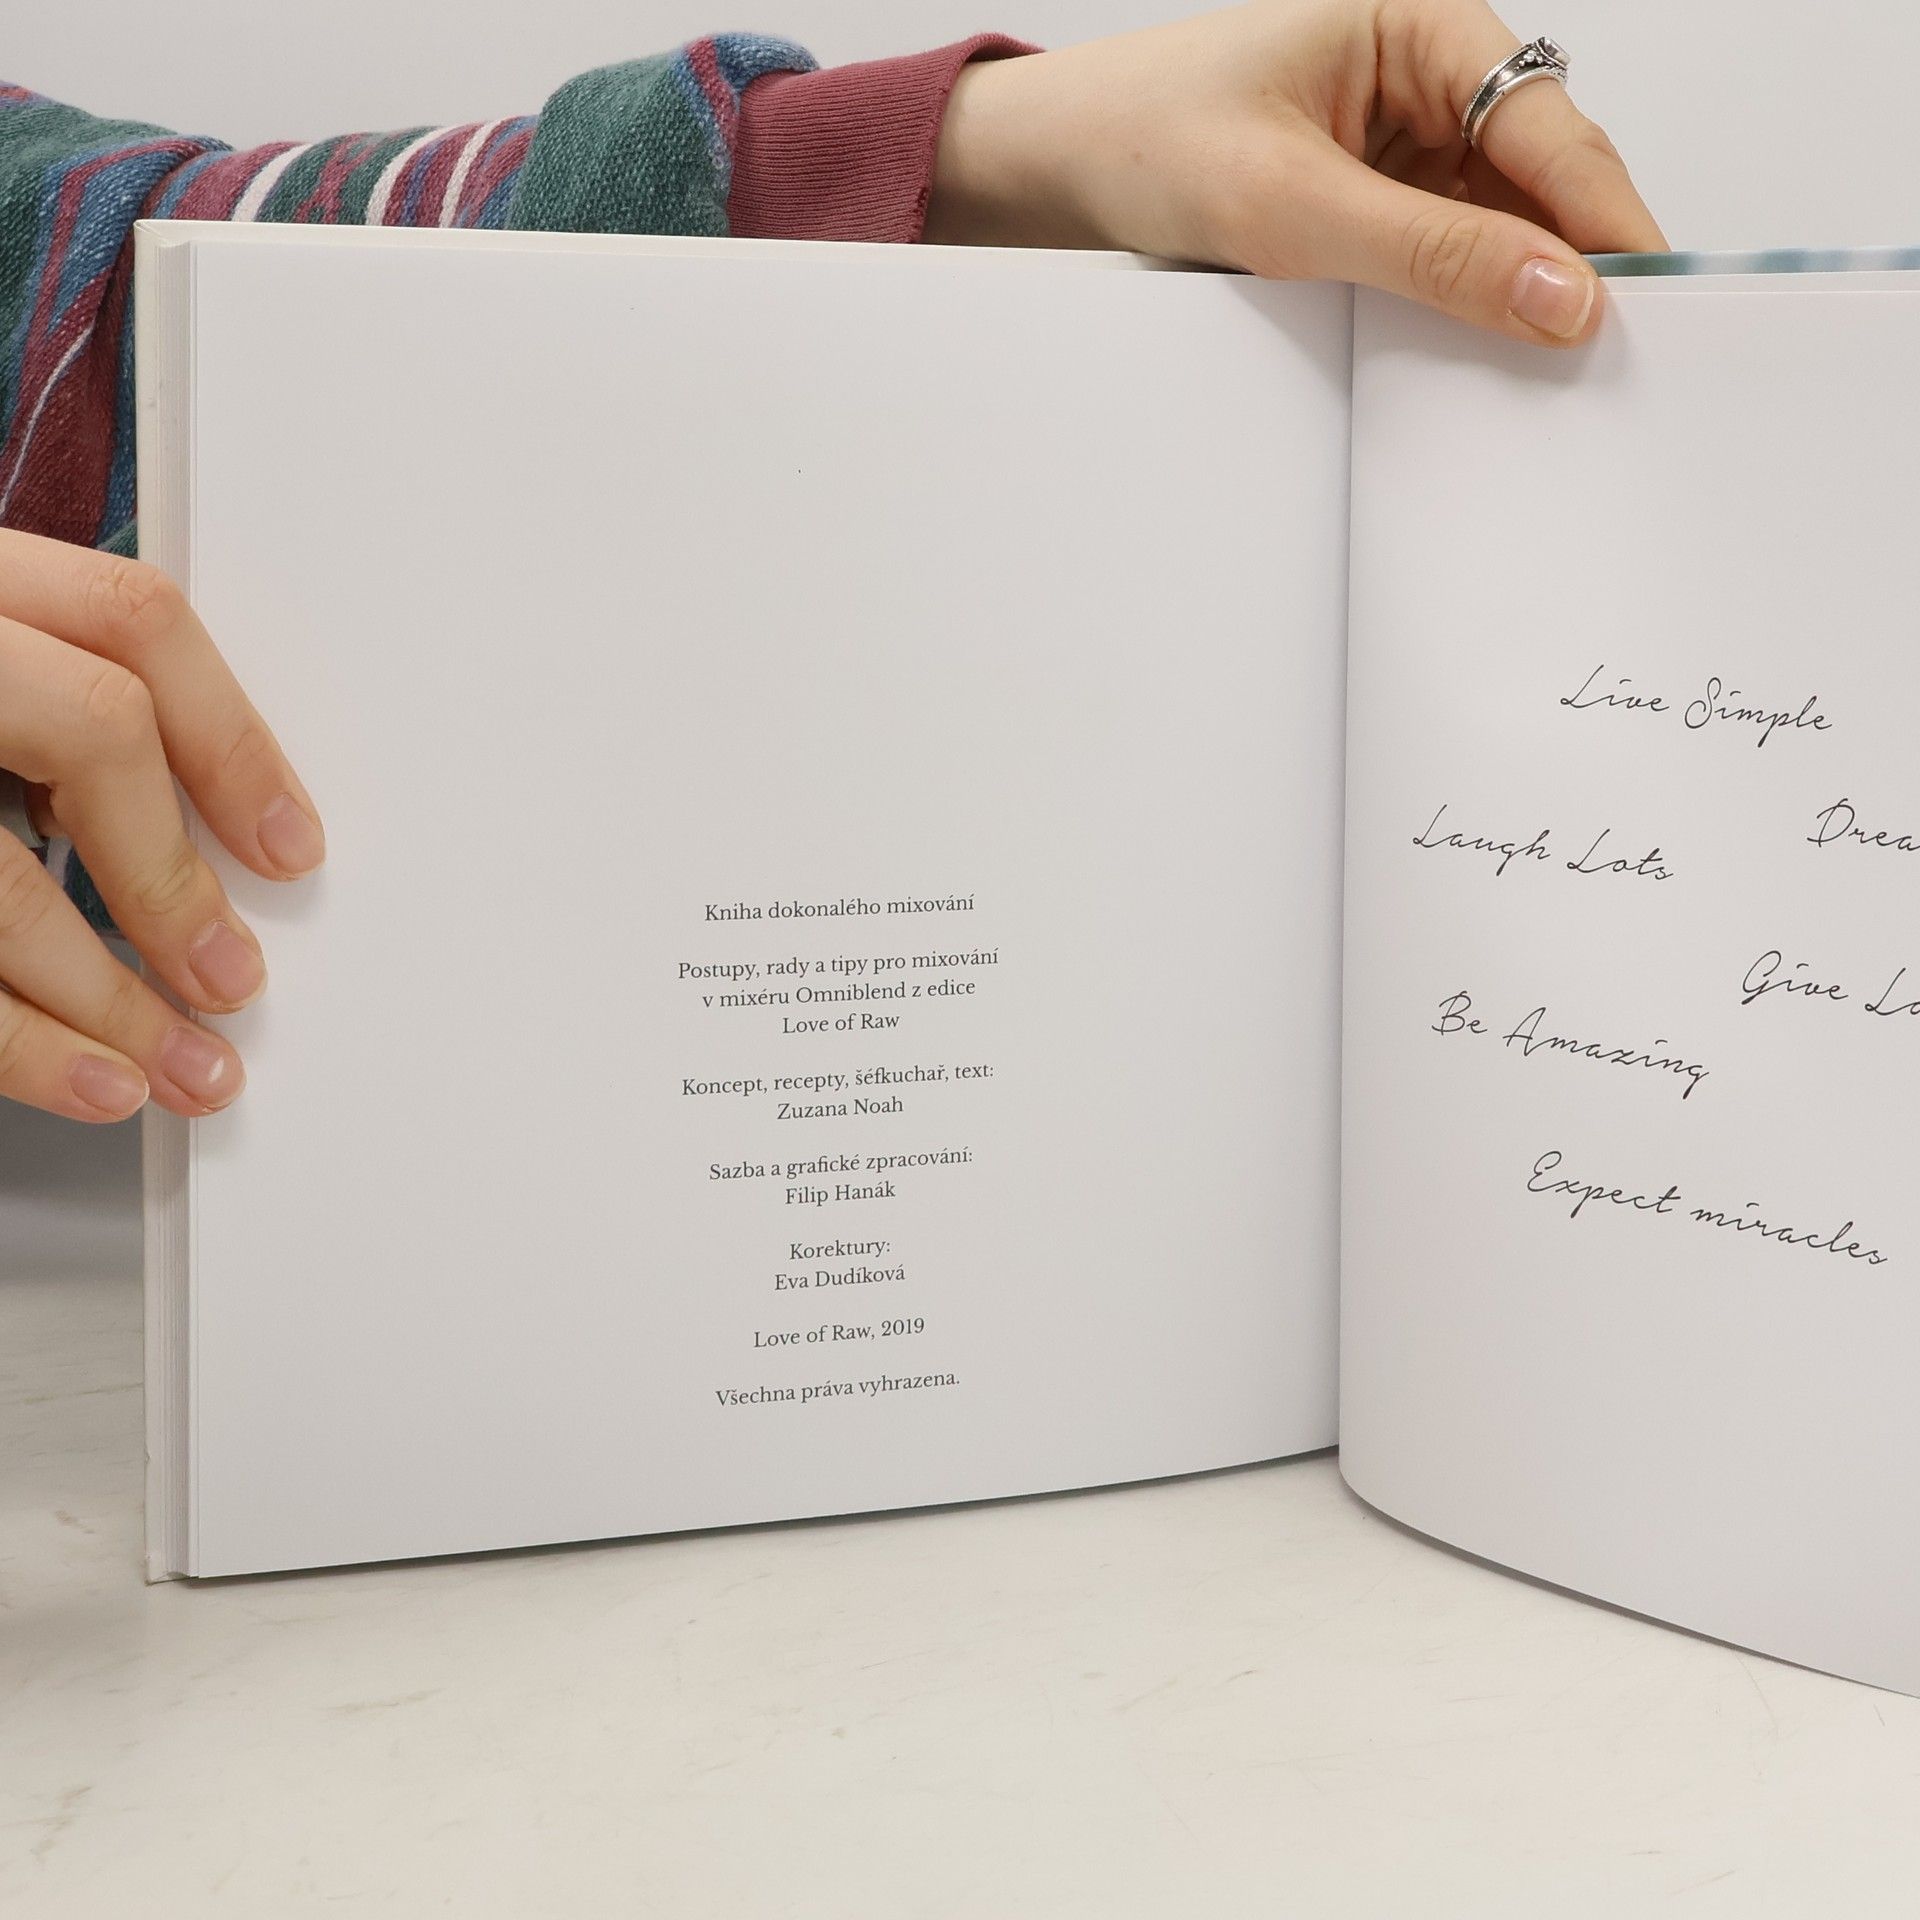 Kniha dokonalého mixování
Postupy, rady a tipy pro mixování
v mixéru Omniblend z edice
Love of Raw
Koncept, recepty, šéfkuchař, text:
Zuzana Noah
Sazba a grafické zpracování:
Filip Hanák
Korektury:
Eva Dudíková
Love of Raw, 2019
Všechna práva vyhrazena.
Live Simple
Laugh Lots
Give
Be Amazing
Expect miracles